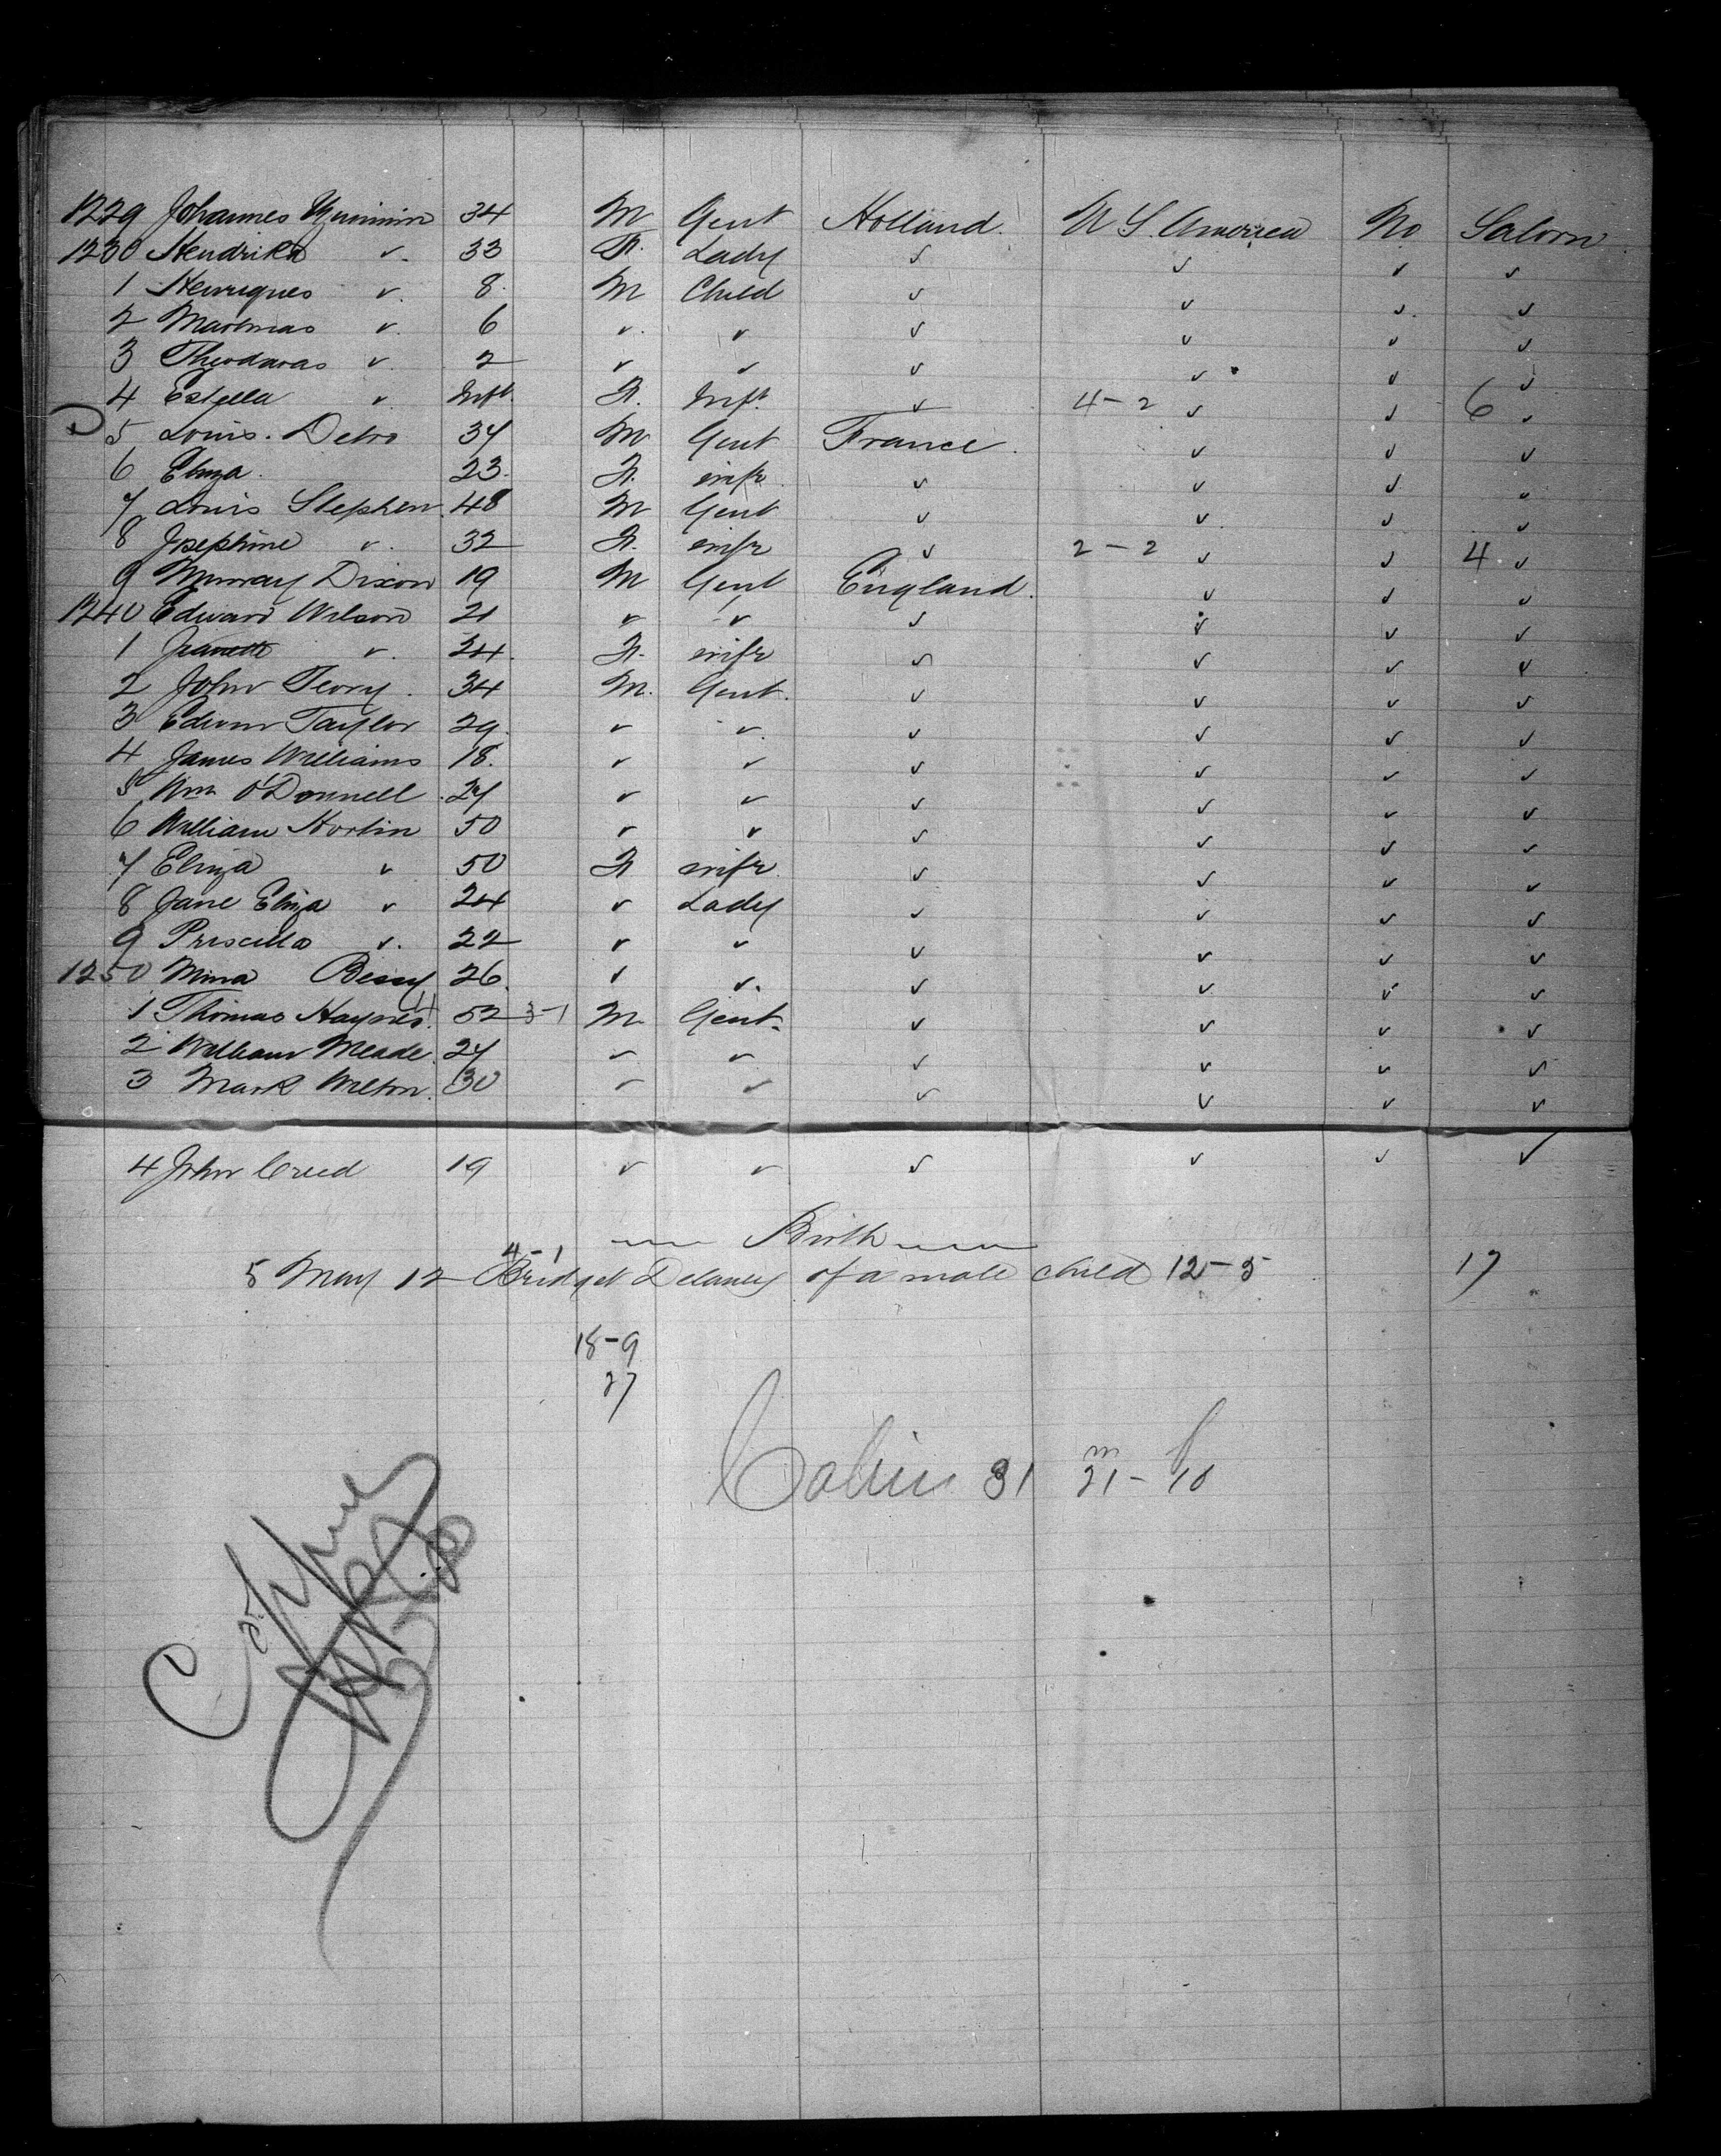 1229 Johannes 34 M Gent Holland. U S. America No Saloon
1230 Hendrika v. 33 F. Lady v v v v
1 Henriques v. 8 M Child v v v v
2 v. 6 v. v v v v v
3 v. 2 v v v v v v
4 Estella v. Inft. F. Inft. v 4-2 v v 6 v
5 Louis. 34 M Gent France. v v v
6 Eliza. 23. F. wife v v v v
7 Louis Stephen. 48 M Gent v v v v
8 Josephine v. 32 F. wife v 2-2 v v 4 v
9 Murray Dixon 19 M Gent England. v v v
1240 Edward Wilson 21 v v v v v v
1 v. 24. F. wife v v v v
2 John Terry. 34 M. Gent. v v v v
3 Edwin Taylor 29. v v. v v v v
4 James Williams 18. v v v v v v
5 Wm O'Donnell. 27 v v v v v v
6 William 50 v v v v v v
7 Eliza v 50 F wife. v v v v
8 Jane Eliza v 24 v Lady v v v v
9 Priscilla v. 22 v v v v v v
1250 Mina 26. v v. v v v v
1 Thomas Haynes. 52 3-1 M Gent. v v v v
2 William Meade. 27 v v v v v v
3 Mark Wilton. 30 v v v v v v
4 John Creed 19 v v v v v v
Birth
4-1
5 May 12 Bridget Delaney of a male child 12-5 17
18-9
27
Cabin 31 m 21- f 10